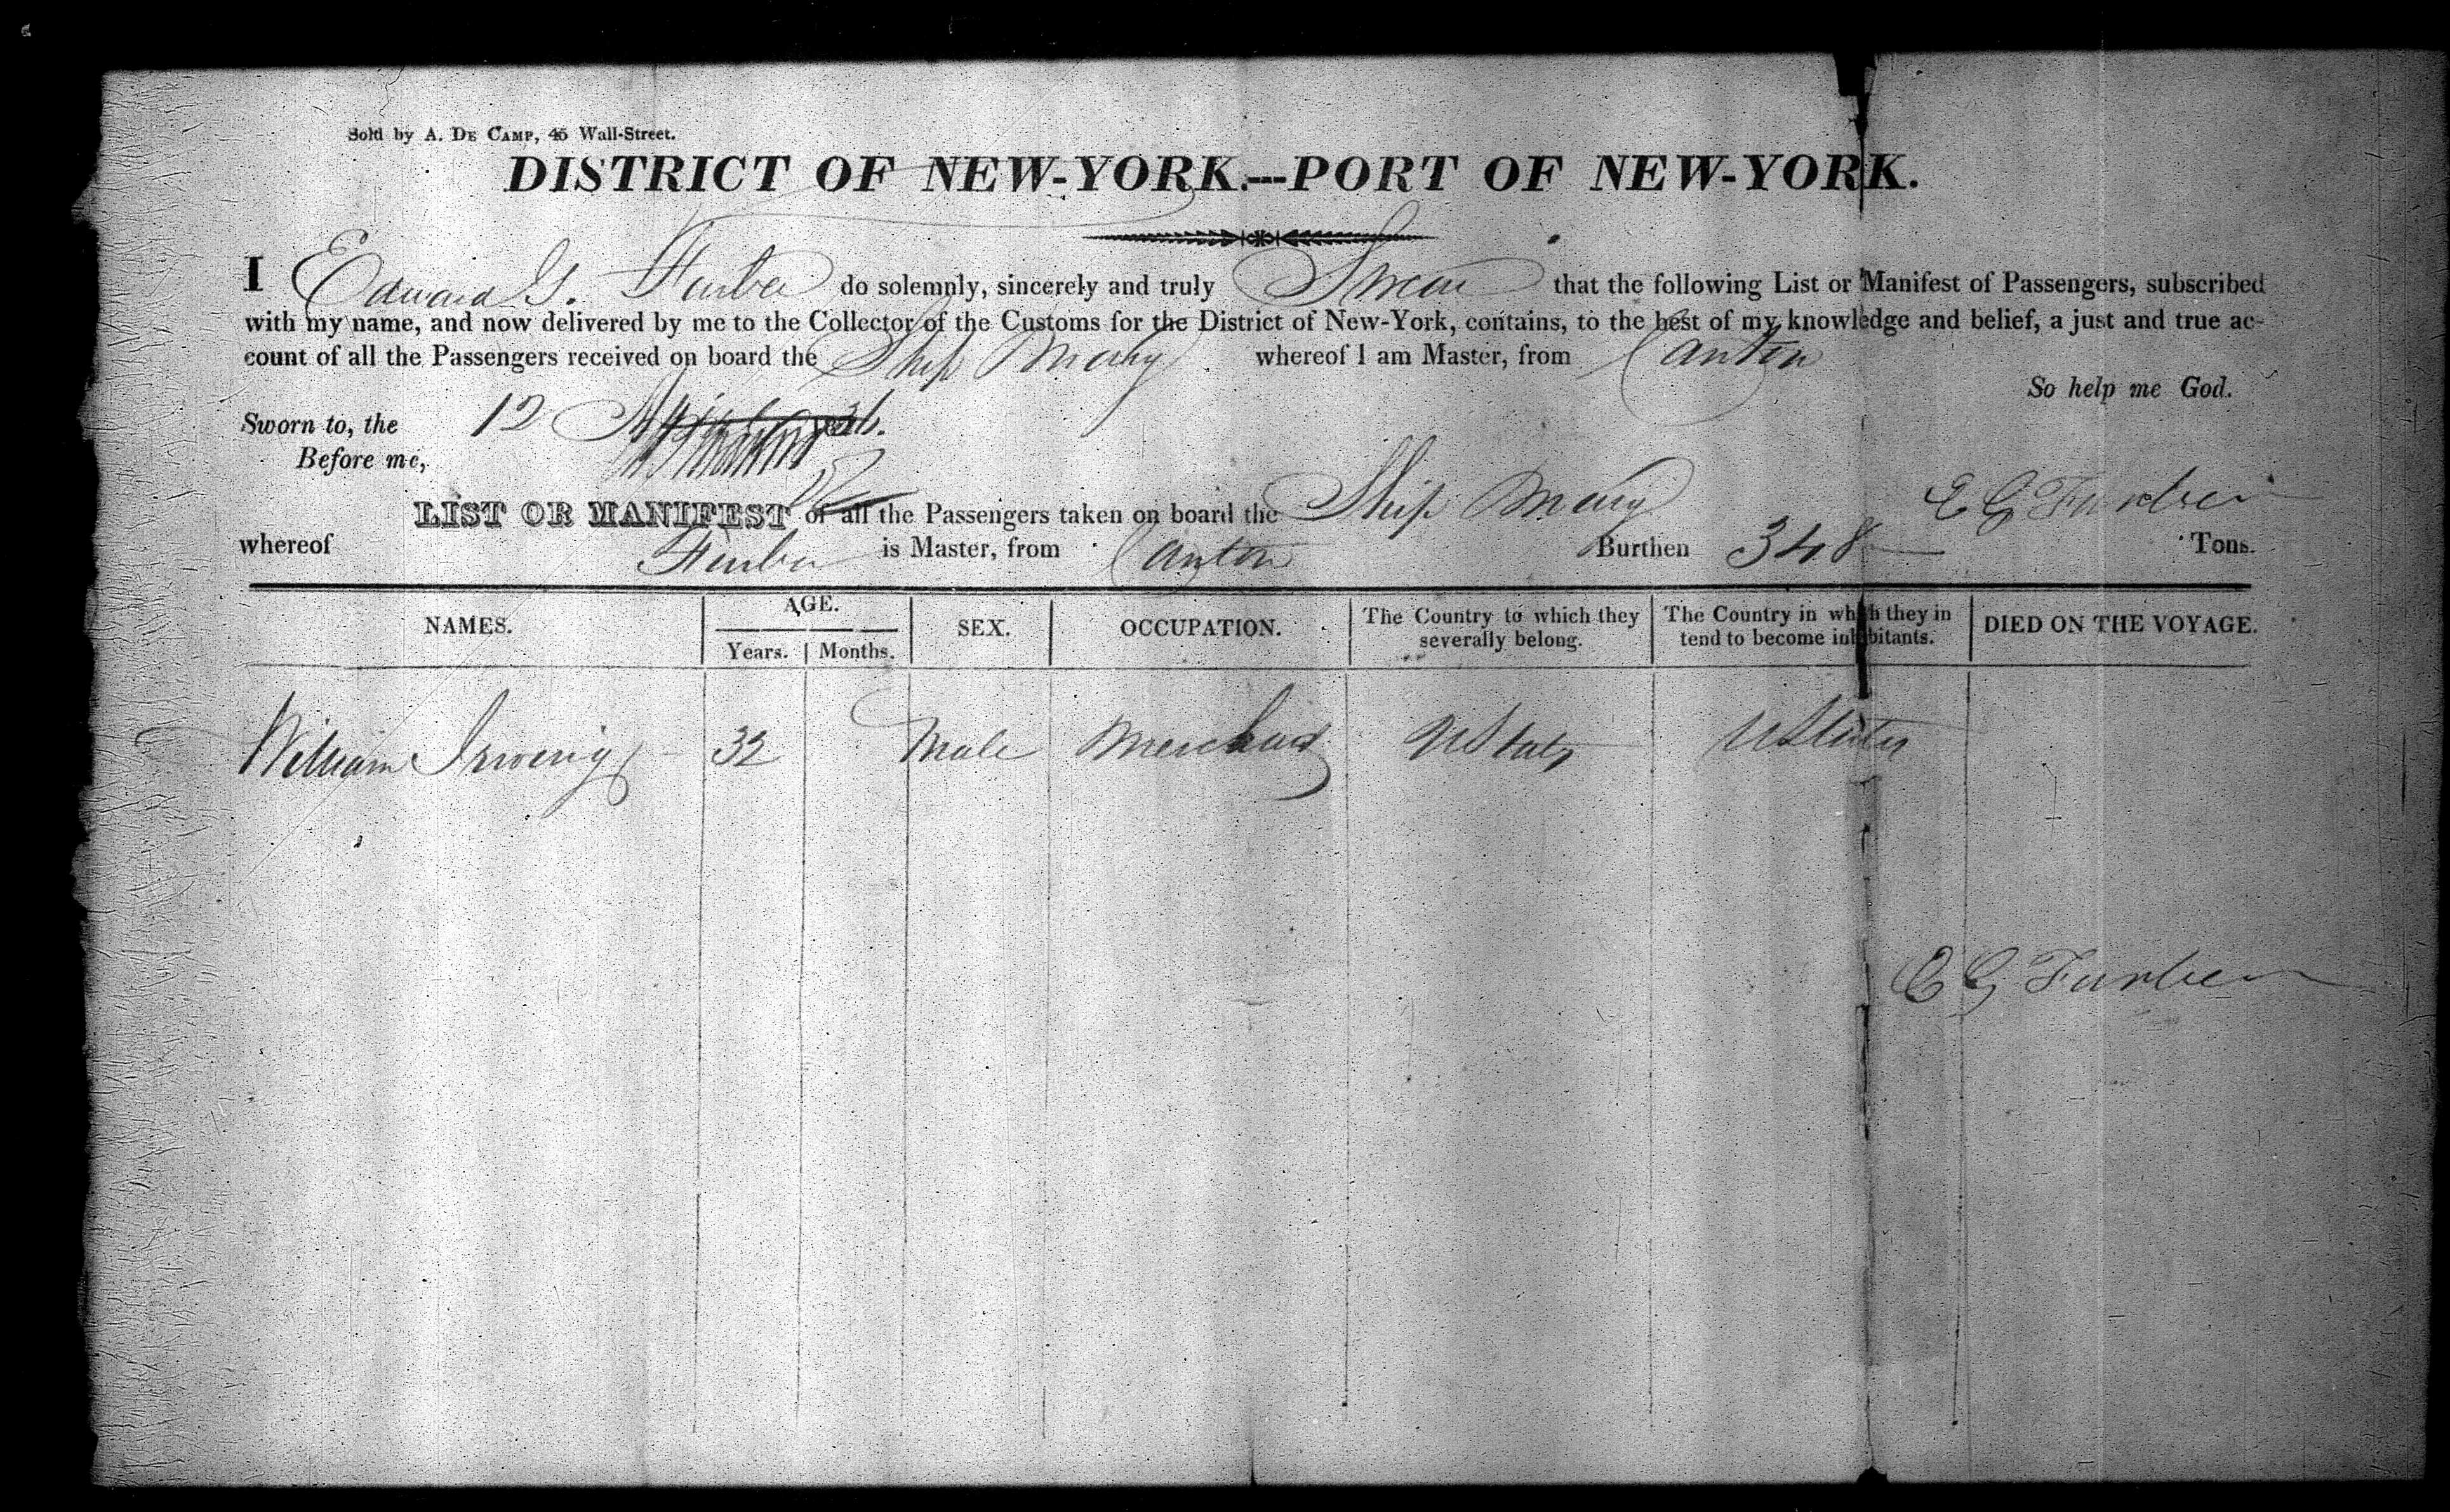 Sold by A. DE CAMP, 45 Wall-Street.
DISTRICT OF NEW-YORK.---PORT OF NEW-YORK.
I Edward G. Furber do solemnly, sincerely and truly Swear that the following List or Manifest of Passengers, subscribed
with my name, and now delivered by me to the Collector of the Customs for the District of New-York, contains, to the best of my knowledge and belief, a just and true ac-
count of all the Passengers received on board the Ship Mary whereof I am Master, from Canton
So help me God.
Sworn to, the 12
Before me,
E G Furber
LIST OR MANIFEST of all the Passengers taken on board the Ship Mary
whereof Furber is Master, from Canton Burthen 348 Tons.
NAMES. AGE. SEX. OCCUPATION. The Country to which they severally belong. The Country in which they in tend to become inhabitants. DIED ON THE VOYAGE.
Years. Months.
William Irwing 32 Male Merchant U States U States
E G Furber